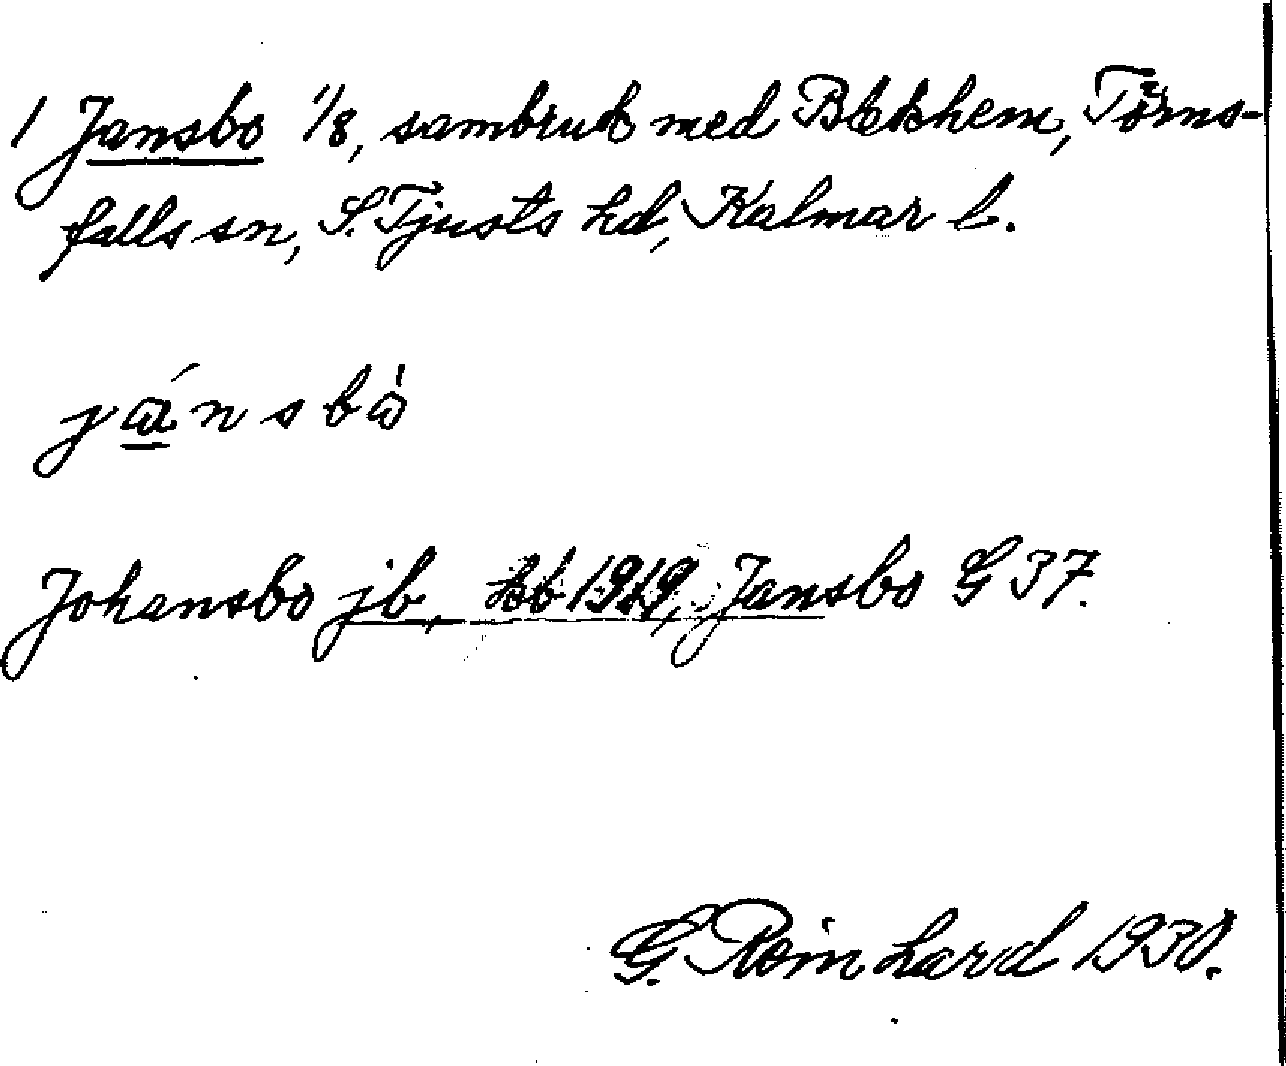 1 Jansbo 1/8, sambruk med Blekhem, Törns-
falls sn, S. Tjusts hd, Kalmar l.
jánsbò
Johansbo jb, hb 1919, Jansbo G 37.
G. Reinhard 1930.